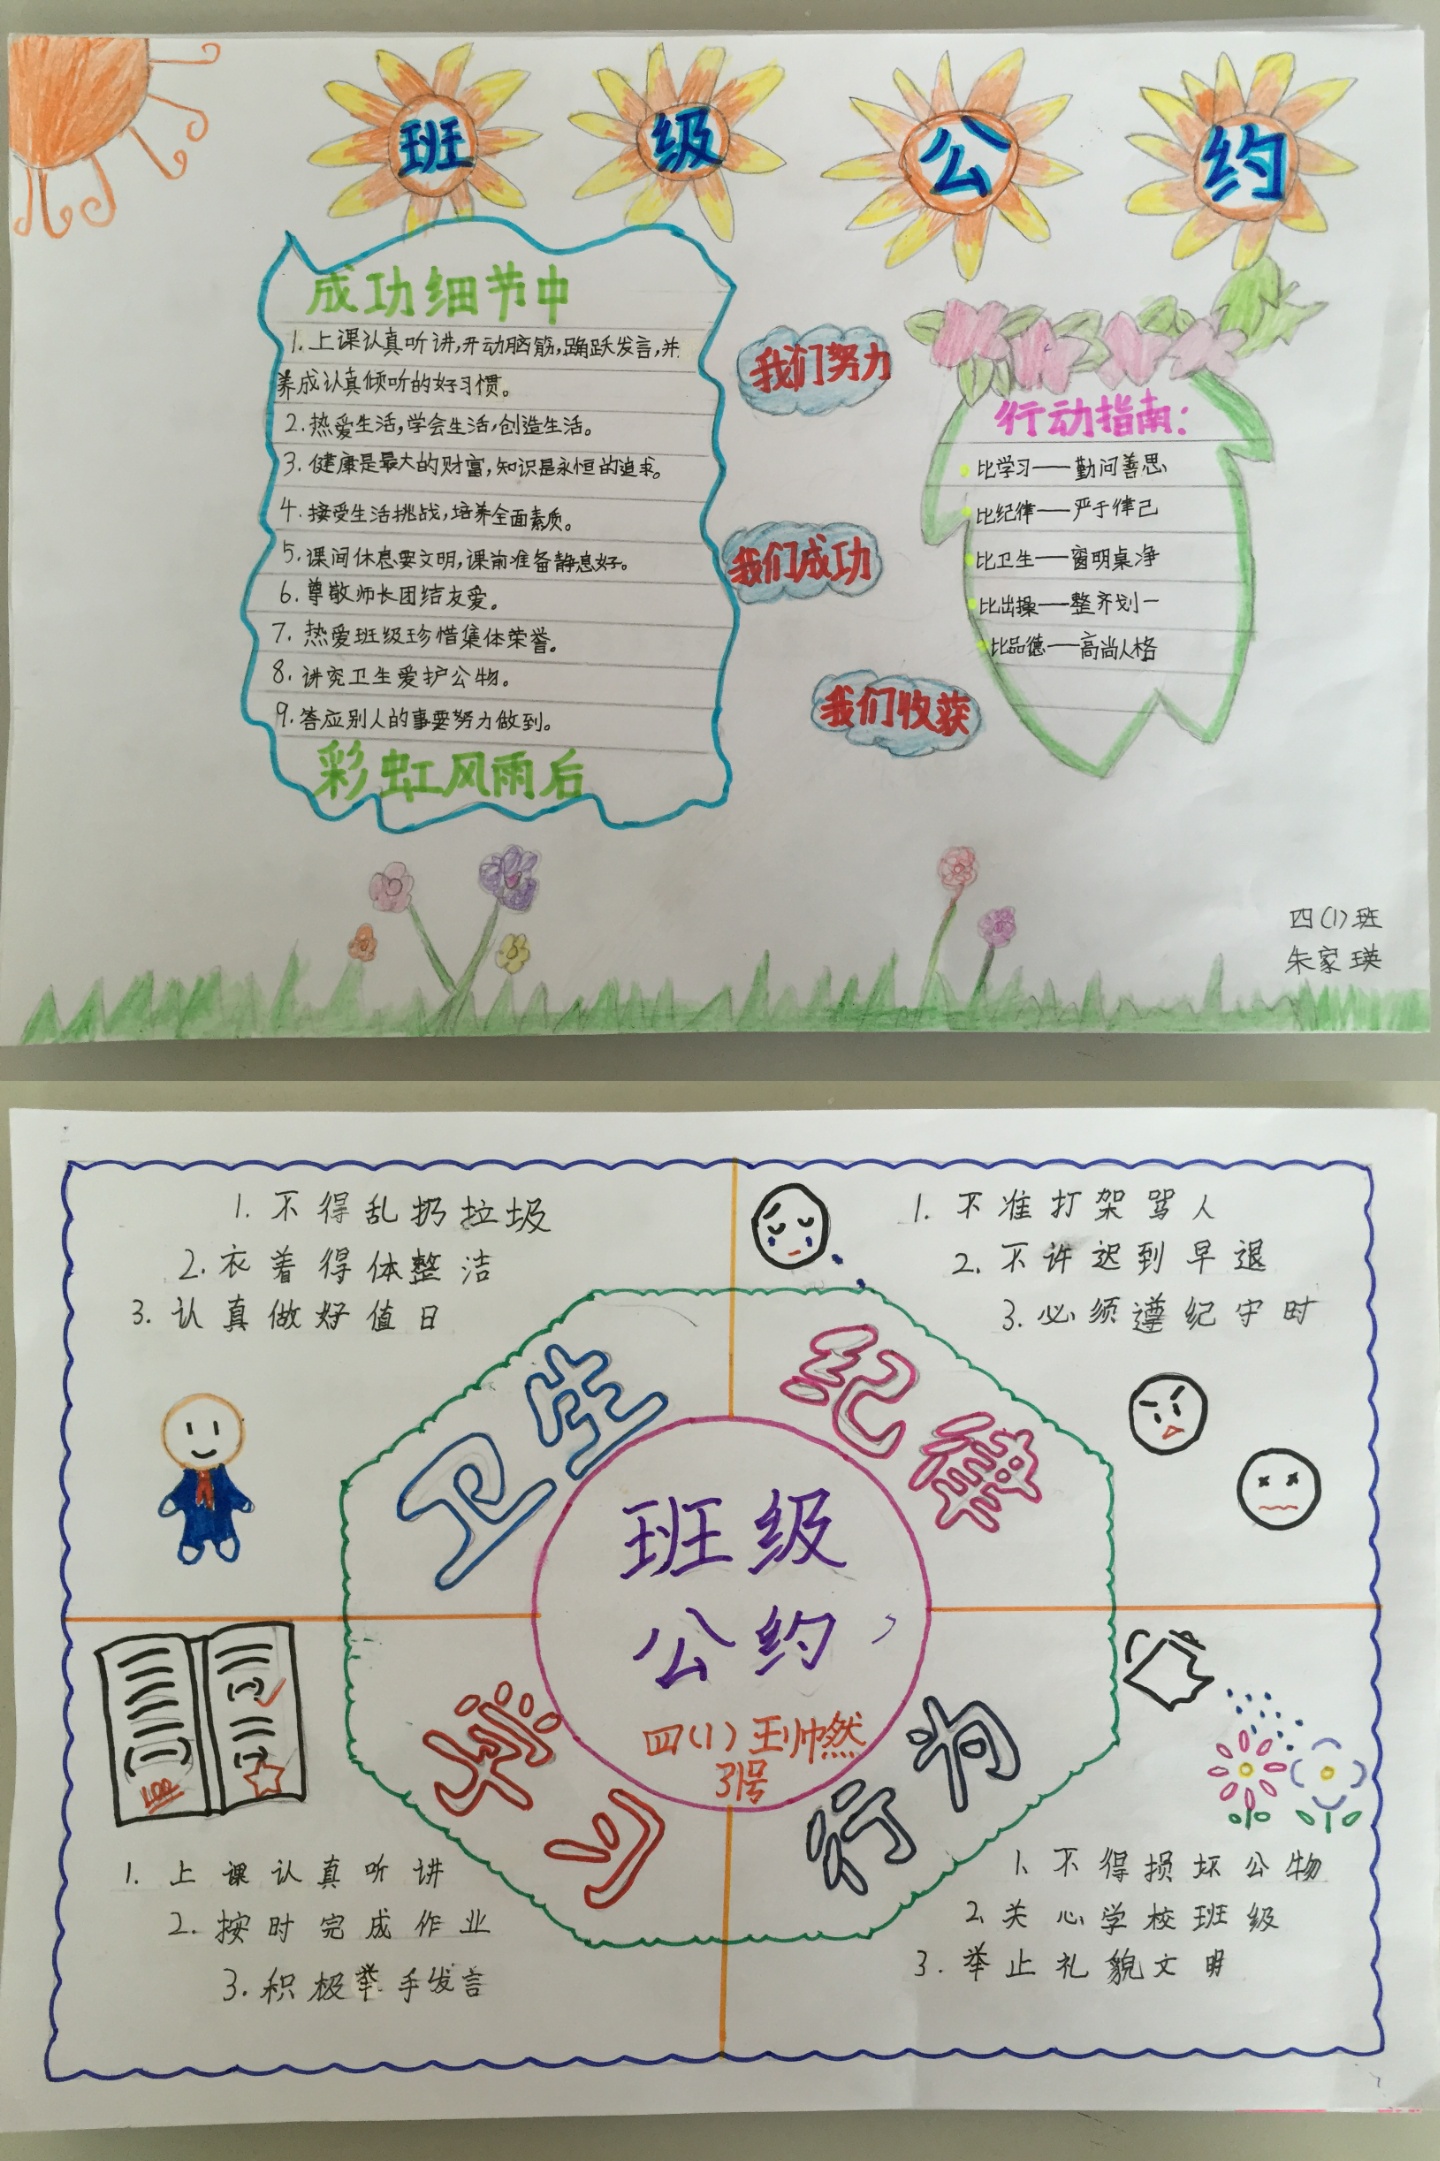 班级公约
成功细节中
1.上课认真听讲,开动脑筋,踊跃发言,并
养成认真倾听的好习惯。
2.热爱生活,学会生活,创造生活。
3.健康是最大的财富,知识是永恒的追求。
4.接受生活挑战,培养全面素质。
5.课间休息要文明,课前准备静息好。
6.尊敬师长团结友爱。
7.热爱班级珍惜集体荣誉。
8.讲究卫生爱护公物。
9.答应别人的事要努力做到。
彩虹风雨后
我们努力
我们成功
我们收获
行动指南:
比学习——勤问善思
比纪律——严于律己
比卫生——窗明桌净
比出操——整齐划一
比品德——高尚人格
四(1)班
朱家瑛
1.不得乱扔垃圾
2.衣着得体整洁
3.认真做好值日
1.不准打架骂人
2.不许迟到早退
3.必须遵纪守时
卫生
纪律
班级
公约
四(1)王帅然
31号
学习
行为
100
1.上课认真听讲
2.按时完成作业
3.积极举手发言
1.不得损坏公物
2.关心学校班级
3.举止礼貌文明